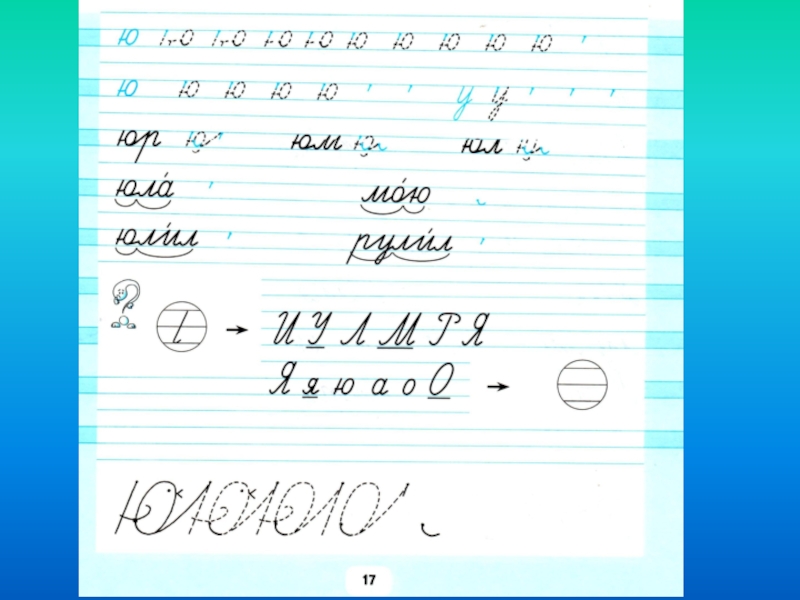 ю ю ю ю ю ю ю ю ю ю
ю ю ю ю ю у у
юр ю юм ю юл ю
юла́ мо́ю
юли́л рули́л
? → И У Л М Р Я
Я я ю а о О →
Ю Ю Ю Ю
17